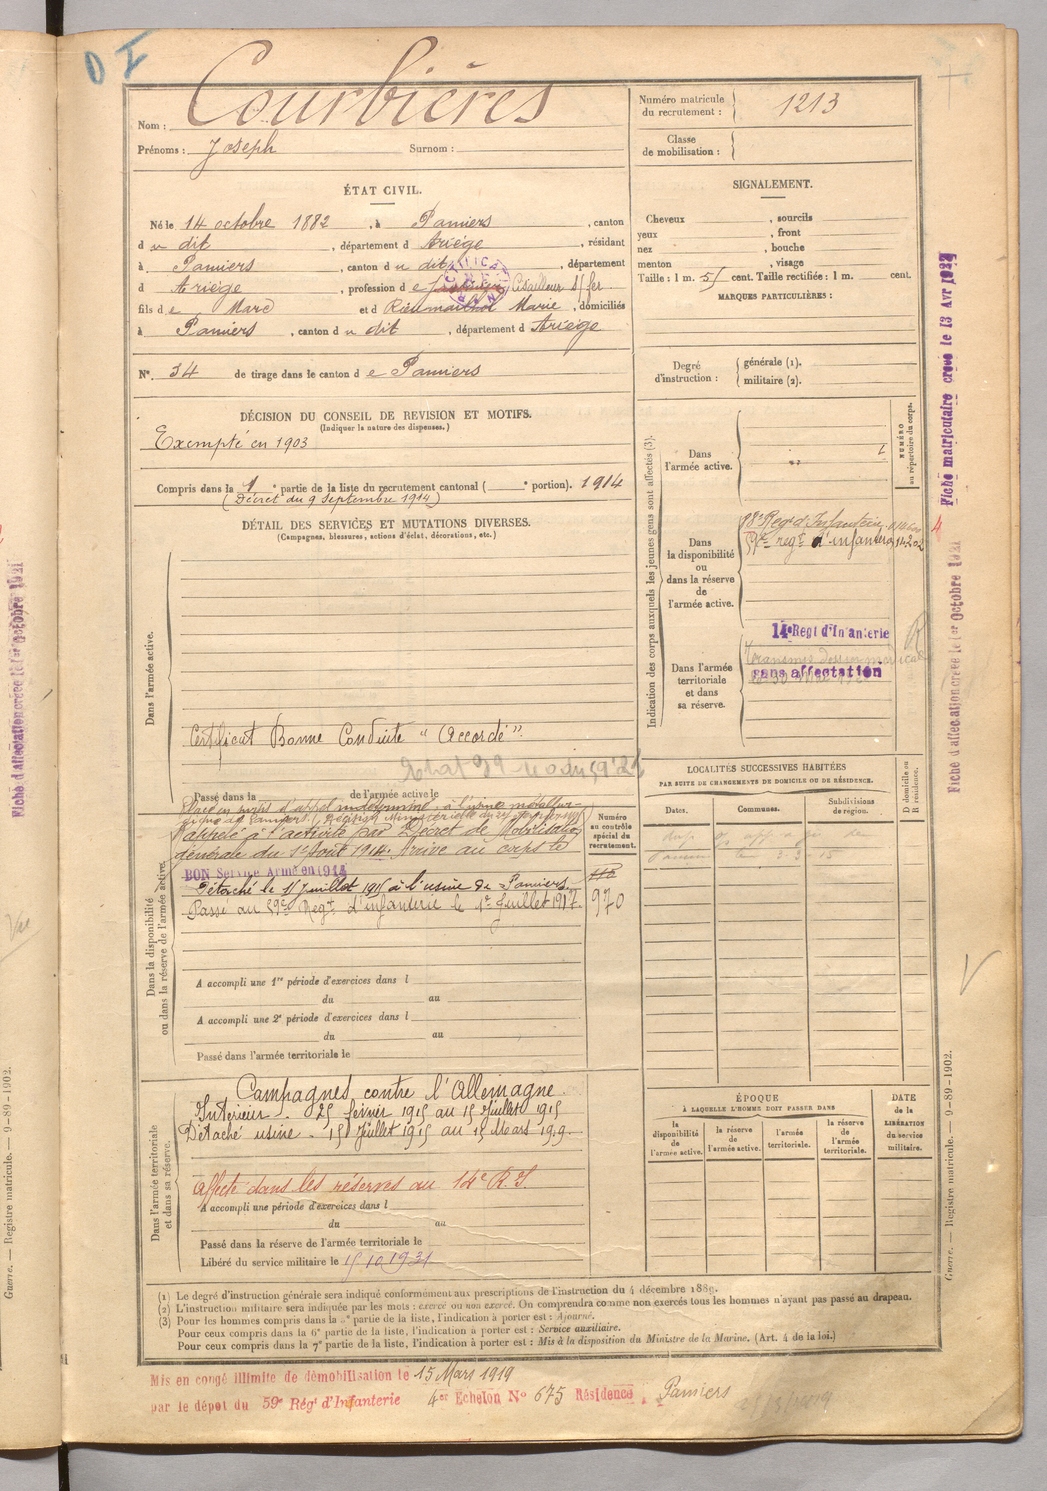 D I
Courbières
Nom :
Prénoms : Joseph Surnom :
Numéro matricule du recrutement : 1213
Classe de mobilisation :
ÉTAT CIVIL.
Né le 14 octobre 1882, à Pamiers, canton
d u dit, département d Ariège, résidant
à Pamiers, canton d u dit, département
d Ariège, profession d e Cisailleur s/ fer
fils d e Marc et d Rieumailhol Marie, domiciliés
à Pamiers, canton d u dit, département d Ariège
N° 34 de tirage dans le canton d e Pamiers
SIGNALEMENT.
Cheveux , sourcils
yeux , front
nez , bouche
menton , visage
Taille : 1 m. 51 cent. Taille rectifiée : 1 m. cent.
MARQUES PARTICULIÈRES :
Degré d'instruction : générale (1).
militaire (2).
DÉCISION DU CONSEIL DE REVISION ET MOTIFS.
(Indiquer la nature des dispenses.)
Exempté en 1903
Compris dans la 1e partie de la liste du recrutement cantonal ( e portion). 1914
(Décret du 9 septembre 1914)
DÉTAIL DES SERVICES ET MUTATIONS DIVERSES.
(Campagnes, blessures, actions d'éclat, décorations, etc.)
Dans l'armée active.
Certificat Bonne Conduite "Accordé"
Passé dans la de l'armée active le
Placé en sursis d'appel indéterminé à l'usine métallur-
gique de Pamiers (Décision Ministérielle du
Rappelé à l'activité par Décret de Mobilisation
générale du 1er Août 1914. Arrivé au corps le
BON Service Armé en 1914
Détaché le 15 Juillet 1915 à l'usine de Pamiers
Passé au 59e Regt d'infanterie le 1er Juillet 1917.
Numéro au contrôle spécial du recrutement.
970
Dans la disponibilité ou dans la réserve de l'armée active.
A accompli une 1re période d'exercices dans l
du au
A accompli une 2e période d'exercices dans l
du au
Passé dans l'armée territoriale le
Dans l'armée territoriale et dans sa réserve.
Campagnes contre l'Allemagne
Intérieur. 25 février 1915 au 15 Juillet 1915
Détaché usine - 15 Juillet 1915 au 15 Mars 1919.
Affecté dans les réserves au 14e R.I.
A accompli une période d'exercices dans l
du au
Passé dans la réserve de l'armée territoriale le
Libéré du service militaire le 15.10.1931
Indication des corps auxquels les jeunes gens sont affectés (3).
NUMÉRO au répertoire du corps.
Dans l'armée active.
Dans la disponibilité ou dans la réserve de l'armée active.
88e Reg d'Infanterie
59e regt d'infanterie 14202
14e Regt d'Infanterie
Dans l'armée territoriale et dans sa réserve.
sans affectation
LOCALITÉS SUCCESSIVES HABITÉES
PAR SUITE DE CHANGEMENTS DE DOMICILE OU DE RÉSIDENCE.
Dates. Communes. Subdivisions de région. D domicile ou R résidence.
ÉPOQUE
À LAQUELLE L'HOMME DOIT PASSER DANS
la disponibilité de l'armée active.
la réserve de l'armée active.
l'armée territoriale.
la réserve de l'armée territoriale.
DATE de la LIBÉRATION du service militaire.
(1) Le degré d'instruction générale sera indiqué conformément aux prescriptions de l'instruction du 4 décembre 1889.
(2) L'instruction militaire sera indiquée par les mots : exercé ou non exercé. On comprendra comme non exercés tous les hommes n'ayant pas passé au drapeau.
(3) Pour les hommes compris dans la 2e partie de la liste, l'indication à porter est : Ajourné.
Pour ceux compris dans la 6e partie de la liste, l'indication à porter est : Service auxiliaire.
Pour ceux compris dans la 7e partie de la liste, l'indication à porter est : Mis à la disposition du Ministre de la Marine. (Art. 4 de la loi.)
Mis en congé illimité de démobilisation le 15 Mars 1919
par le dépot du 59e Régt d'Infanterie 4e Echelon N° 675 Résidence à Pamiers
Fiche matriculaire créée le 13 Avr 1927
Fiche d'affectation créée le 1er Octobre 1921
Guerre. — Registre matricule. — 9-89-1902.
Fiche d'affectation créée le 1er Octobre 1921
Guerre. — Registre matricule. — 9-89-1902.